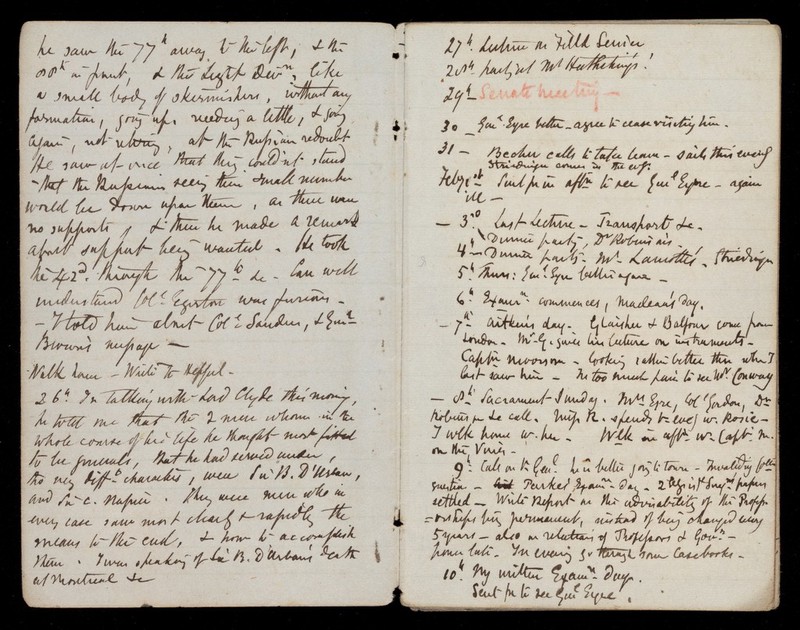 he saw the 77th away to the left, & the
88th in front, & the Light Divn, like
a small body of skirmishers, without any
formation, going up, kneeling a little, & going
again, not retiring, at the Russian redoubt
He saw at once that they couldn't stand
- that the Russians seeing their small number
would be down upon them, as there were
no supports, & then he made a remark
about support being wanted. He took
the 42d. through the 77th &c. Can well
understand Coll Egerton was furious -
- I told him about Coll Sanders, & Genl
Brown's message -
Walk home - Write to Heffel -
26th In talking with Lord Clyde this morning,
he told me that the 2 men whom in the
whole course of his life he thought most fitted
to be generals, that he had served under,
tho very difft characters, were Sir B. D'Urban,
and Sir C. Napier. They were men who in
every case saw most clearly & rapidly the
means to the end, & how to accomplish
them. I was speaking of Sir B. D'Urban's death
at Montreal &c
27th. Lecture on Field Service
28th party at Mrs
29th Senate meeting -
30 - Genl Eyre better - agree to cease visiting him.
31 - Becher calls to take leave - sails this eveng
comes in the evg.
Feby 1st Sent for in aftn to see Genl Eyre - again
ill -
- 3rd Last Lecture - Transport &c.
Dinner party, Dr Robertson's
4th - Dinner party - Mr Lamotte's -
5th Thurs: Genl Eyre better again -
6th Examn: commences, Maclean's day.
- 7th Aitken's day - Glaisher & Balfour come from
London - Mr G. gives his lecture on instruments -
Captn - looking rather better than when I
last saw him - In too much pain to see Mr Conway
- 8th Sacrament Sunday. Mrs Eyre, Col Gordon, Dr
Robertson &c call. Miss R. spends the eveg w. Rosie -
I walk home w. her. - Walk in aftn w. Capt. M.
on the Lines -
9th. Call on the Genl. he is better going to town -
question - Parkes' Examn day -
settled - Write Report on the advisability of the Profess
=orships being permanent, instead of being changed every
5 years - also on selection of Professors & -
home late - In evening go through some Casebooks -
10th My written Examn day.
Sent for to see Genl Eyre.